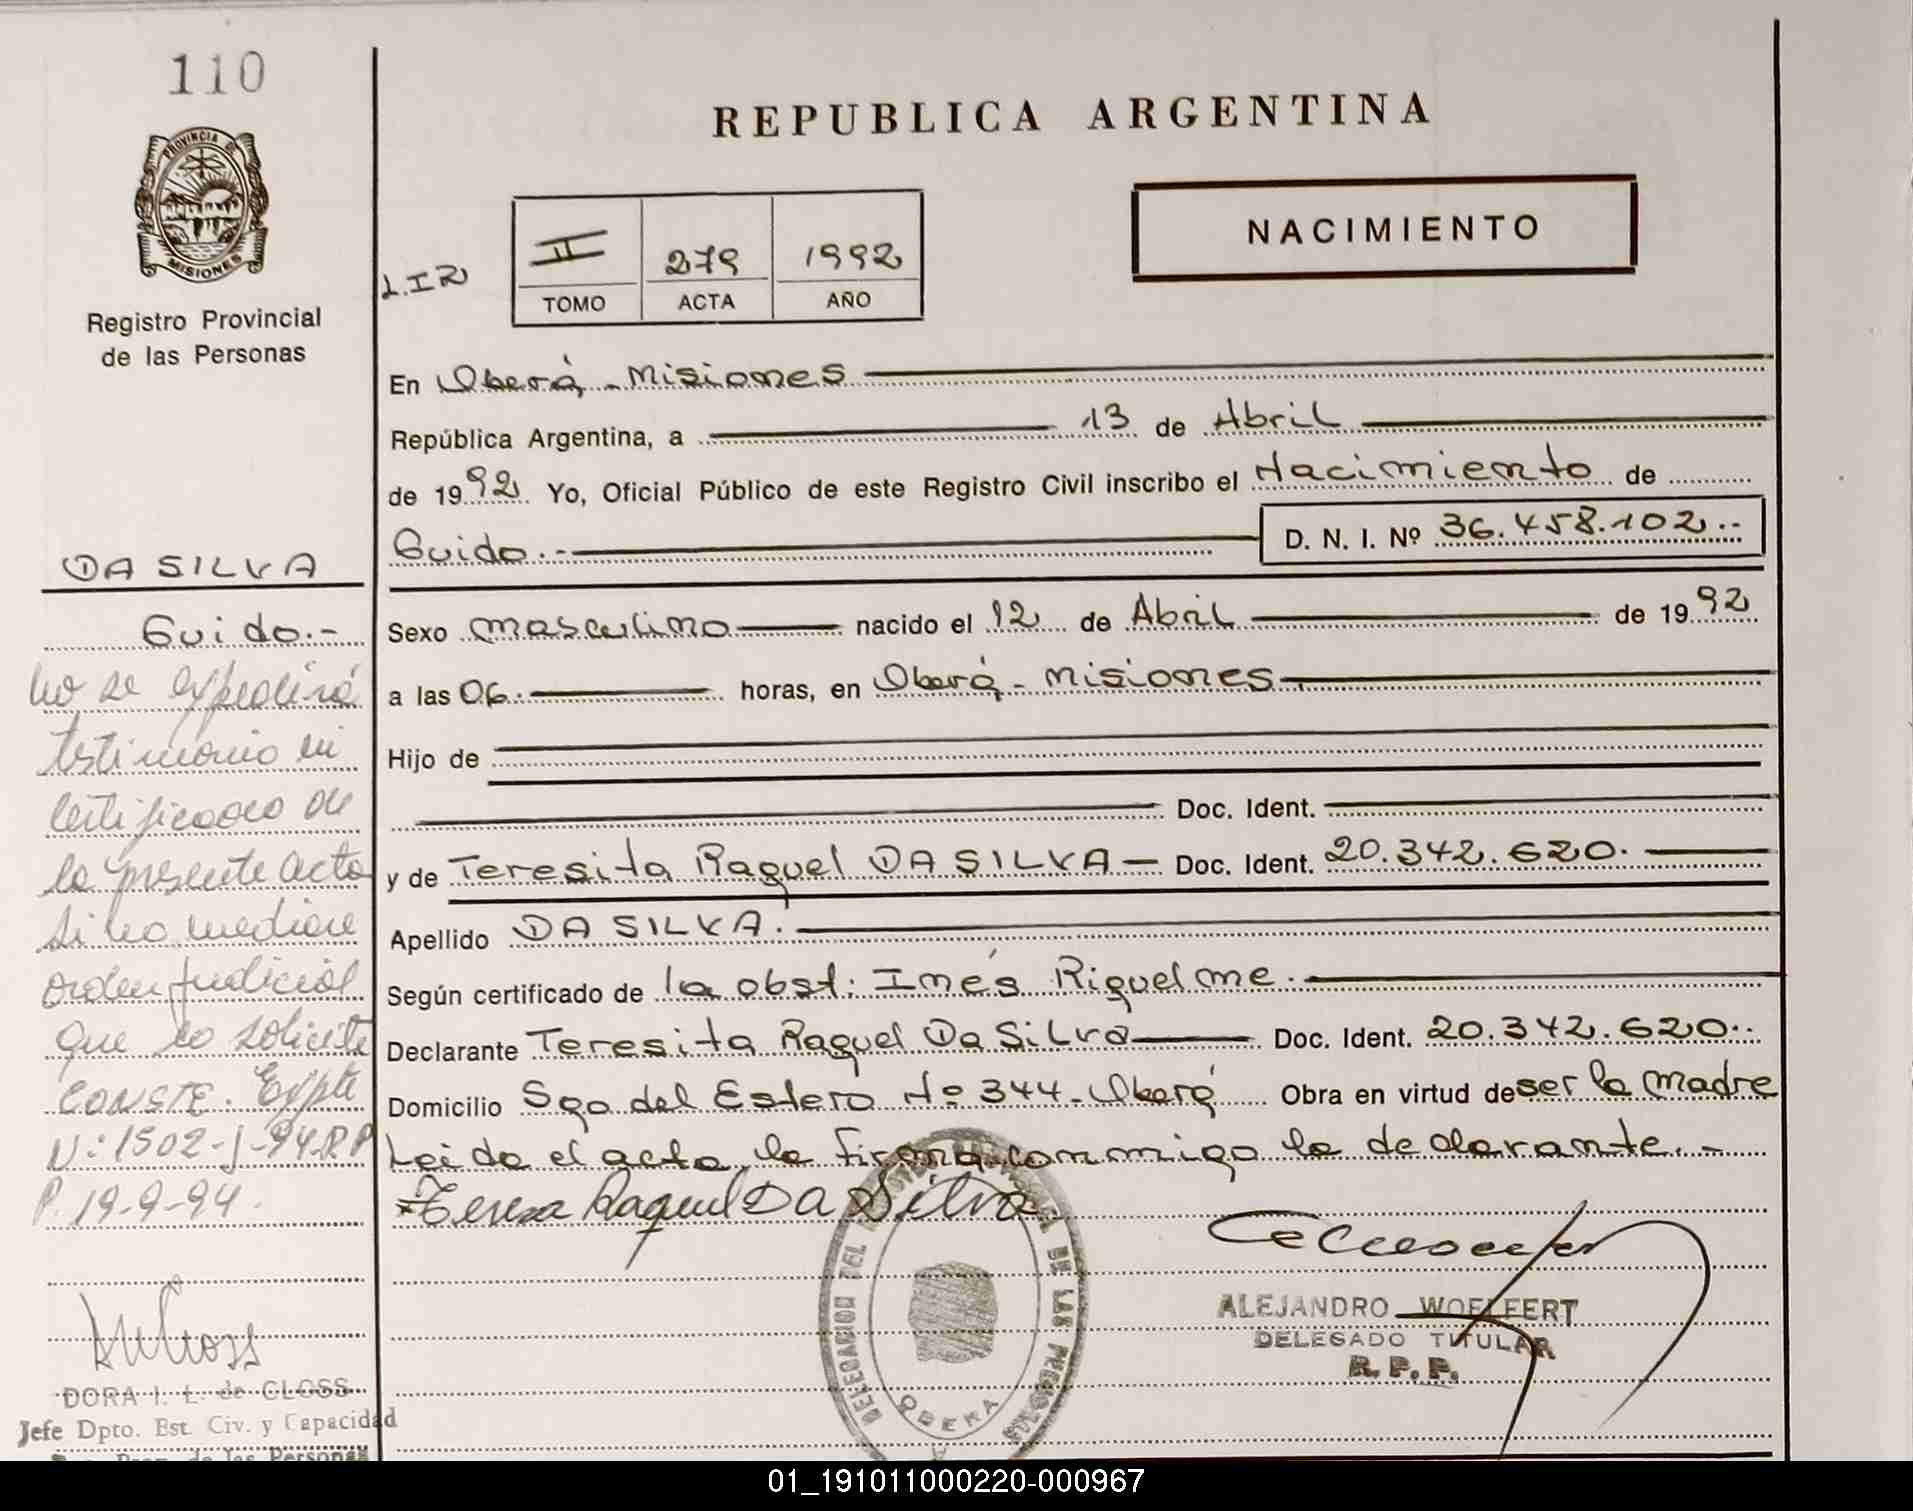 110
PROVINCIA DE
MISIONES
Registro Provincial
de las Personas
REPUBLICA ARGENTINA
NACIMIENTO
II 279 1992
TOMO ACTA AÑO
En Oberá - Misiones
República Argentina, a 13 de Abril
de 1992 Yo, Oficial Público de este Registro Civil inscribo el Nacimiento de
Guido.- D. N. I. Nº 36.458.102..
Sexo masculino nacido el 12 de Abril de 1992
a las 06. horas, en Oberá - misiones.
Hijo de
Doc. Ident.
y de Teresita Raquel DA SILVA - Doc. Ident. 20.342.620.
Apellido DA SILVA.
Según certificado de la obst: Inés Riquelme.
Declarante Teresita Raquel Da Silva Doc. Ident. 20.342.620..
Domicilio Sgo del Estero Nº 344 - Oberá Obra en virtud de ser la madre
Leida el acta, la firma conmigo la declarante.-
Teresa Raquel DA Silva
ALEJANDRO WOELFERT
DELEGADO TITULAR
R. P. P.
DELEGACION DEL DE LAS PERSONAS
OBERA
DA SILVA
Guido.-
No se expedirá
testimonio ni
certificado de
la presente acta
si no mediare
orden judicial
que lo solicite
CONSTE. Expte
Nº: 1502-J-94.R.P
P. 19-9-94.
DORA I. L. de CLOSS
Jefe Dpto. Est. Civ. y Capacidad
Prov. de las Personas
01_191011000220-000967